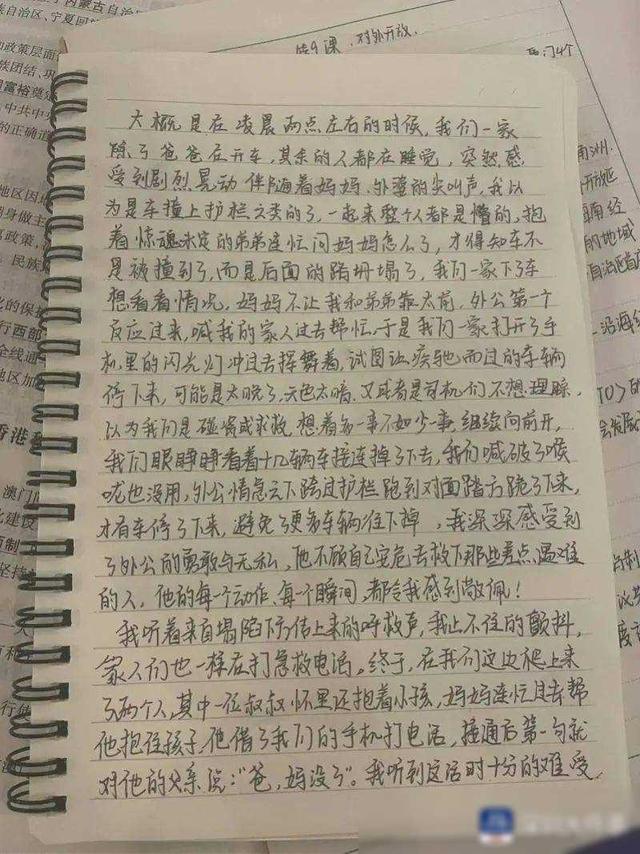 族自治区、宁夏回
第9课 对外开放
大概是在凌晨两点左右的时候,我们一家
除了爸爸在开车,其余的人都在睡觉,突然感
受到剧烈晃动 伴随着妈妈、外婆的尖叫声,我以
为是车撞上护栏之类的了,一起来整个人都是懵的,抱
着惊魂未定的弟弟连忙问妈妈怎么了,才得知车不
是被撞到了,而是后面的路坍塌了,我们一家下了车
想看看情况,妈妈不让我和弟弟靠太前,外公第一个
反应过来,喊我的家人过去帮忙,于是我们一家打开了手
机里的闪光灯冲过去挥舞着,试图让疾驰而过的车辆
停下来,可能是太晚了,天色太暗,又或者是司机们不想理睬,
以为我们是碰瓷或求救,想着多一事不如少一事,继续向前开,
我们眼睁睁看着十几辆车接连掉了下去,我们喊破了喉
咙也没用,外公情急之下跨过护栏跑到对面路方跪了下来,
才有车停了下来,避免了更多车辆往下掉,我深深感受到
了外公的勇敢与无私,他不顾自己安危去救下那些差点遇难
的人,他的每一个动作、每一个瞬间,都令我感到敬佩!
我听着来自塌陷下方传上来的呼救声,我止不住的颤抖,
家人们也一样在打急救电话,终于,在我们这边爬上来
了两个人,其中一位叔叔怀里还抱着小孩,妈妈连忙过去帮
他抱住孩子,他借了我们的手机打电话,接通后第一句就
对他的父亲说:“爸,妈没了”。我听到这话时十分的难受,